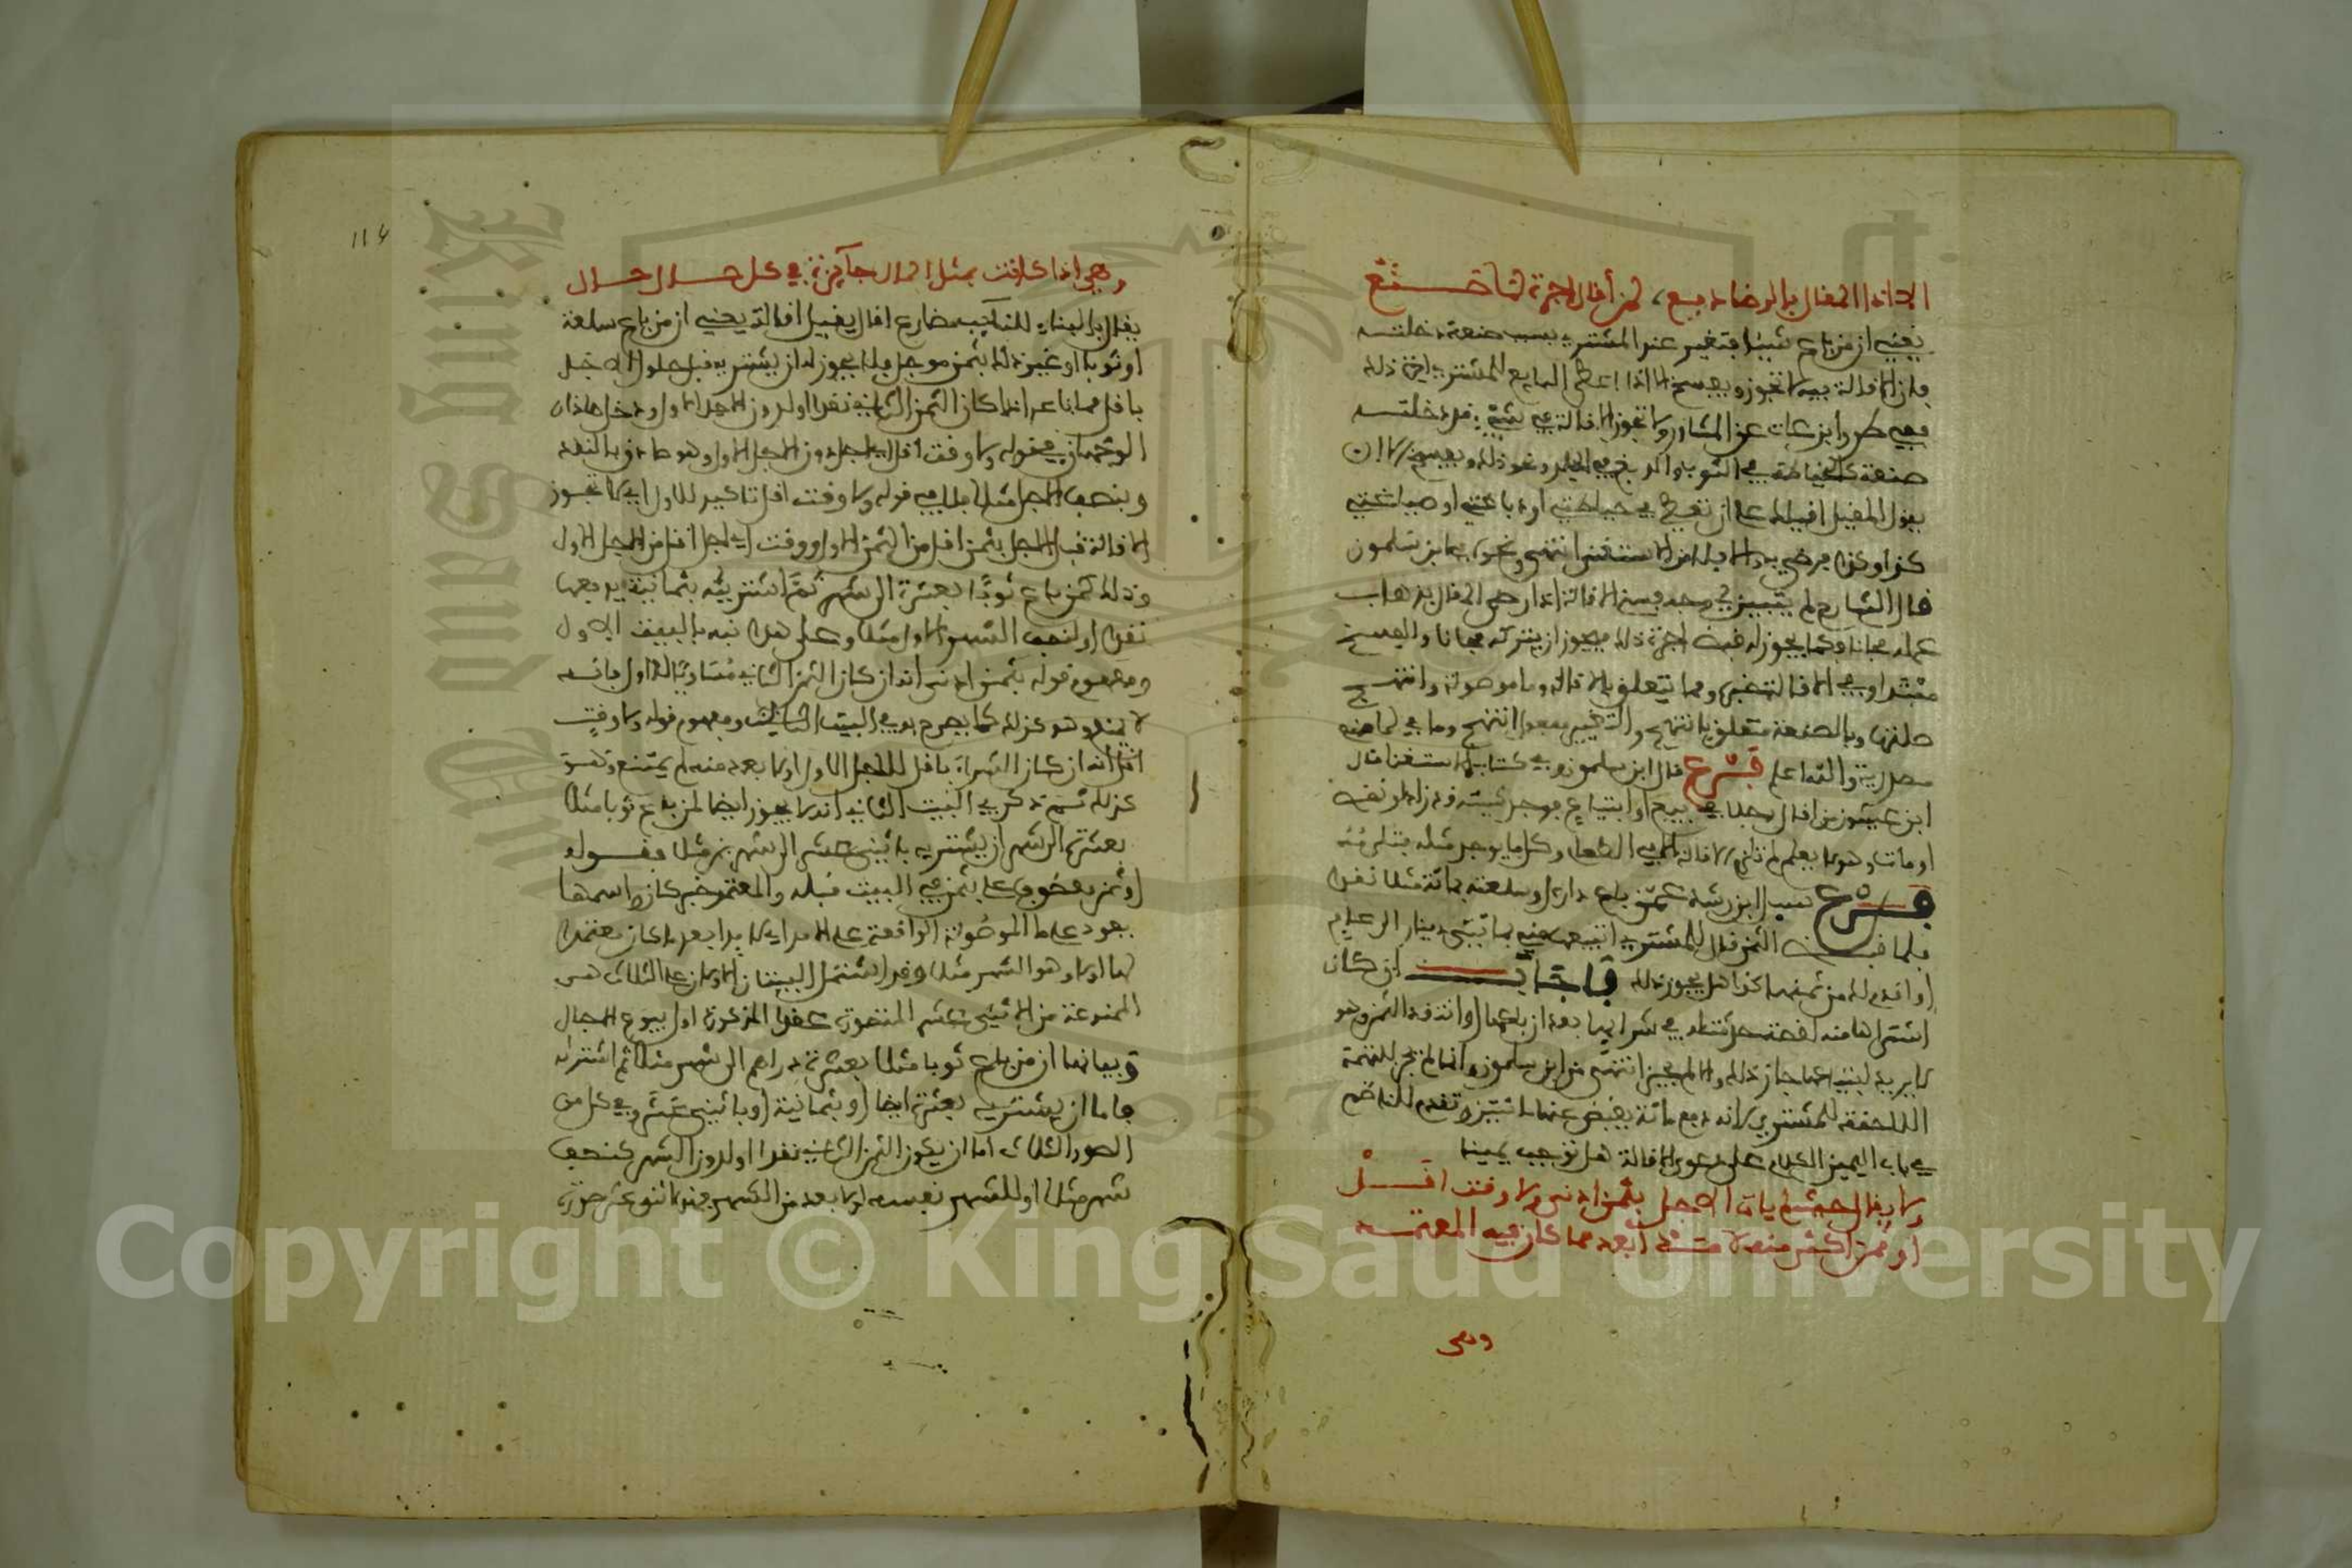 الا اذا المقال بالرضا دفع لمن أقال أجرة لما صنع
يعني ان من باع شيئا فتغير عند المشتري بسبب صنعة دخلته
فإن الاقالة فيه لا تجوز ويفسخ الا اذا اعطى البايع للمشتري اجر ذلك
ففي طرر ابن عات عن المشاور ولا تجوز الاقالة في شيء قد دخلته
صنعة كالخياطة في الثوب والدبغ في الجلد ونحو ذلك ويفسخ الا ان
يقول المقيل اقيلك على ان تعطيني في خياطتي او دباغتي او صباغتي
كذا وكذا فرضي به والا فلا من الاستغنا انتهى ونحوه في ابن سلمون
قال الشارح لم يتبين لي وجه فسخ الاقالة اذا رضي المقال بذهاب
عمله مجانا وكما يجوز له قبض اجرة ذلك يجوز ان يتركه مجانا والفسخ
مبتدا وفي الاقالة خبره ومما يتعلق بالاقالة وما موصولة وانتهج
صلتها وبالصنعة متعلق بانتهج والتغيير مفعول انتهج وما في لما صنع
مصدرية والله اعلم فرع قال ابن سلمون وفي كتاب الاستغنا قال
ابن عيشون من اقال رجلا في بيع او ابتياع فوجد شيئه قد زاد او نقص
او مات وهو لا يعلم لم تلزم الاقالة الا في الطعام وكل ما يوجد مثله
فرع سئل ابن رشد عمن باع دارا او سلعة بمائة مثلا نقدا
فلما قبض الثمن قال للمشتري اتبيعها مني بمائتي دينار الى عام
او اقدم لك من ثمنها كذا هل يجوز ذلك فاجاب ان كان
اشتراها منه لحقته حرشتك في شرائها بعد ان باعها او انتقد الثمن وهو
لا يريد لبيتاعها جاز ذلك والا لم يجز انتهى من ابن سلمون وانما لم يجز للتهمة
اللاحقة للمشتري لانه دفع مائة يقبض عنها مائتين وتقدم للناظم
في باب اليمين الكلام على دعوى الاقالة هل توجب يمينا
ولا يقال حيث لم يات الاجل بثمن ادنى ولا وقت اقل
أو ثمن أكثر منه لأمد أبعد مما كان فيه المعتمد
وهي
114
وهي اذا كانت بمثل المال جائزة في كل حال حال
يقال بالبناء للنائب مضارع اقال يقيل اقالة يعني ان من باع سلعة
او ثوبا او غير ذلك بثمن موجل فلا يجوز له ان يشتريه قبل حلول الاجل
باقل مما باعه به اذا كان الثمن الثاني نقدا او لدون الاجل الاول ودخل هذان
الوجهان في قوله ولا وقت اقل اي لاجل دون الاجل الاول وهو صادق بالنقد
وبنصف الاجل مثلا فلا في قوله ولا وقت اقل تاكيد للاول اي لا تجوز
الاقالة قبل الاجل بثمن اقل من الثمن الاول ووقت اي لاجل اقل من الاجل الاول
وذلك كمن باع ثوبا بعشرة الى شهر ثم اشتريه بثمانية يدفعها
نقدا او لنصف الشهر الاول مثلا وعلى هذا نبه بالبيت الاول
ومفهوم قوله بثمن ادنى انه ان كان الثمن الثاني مساويا للاول فانه
لا يمنع وهو كذلك كما يصرح به في البيت الثالث ومفهوم قوله ولا وقت
اقل انه ان كان الشراء باقل للاجل الاول او لابعد منه لم يمتنع وهو
كذلك ثم ذكر في البيت الثاني انه لا يجوز ايضا لمن باع ثوبا مثلا
بعشرة الى شهر ان يشتريه باثني عشر الى شهرين مثلا فقوله
او ثمن معطوف على بثمن في البيت قبله والمعتمد خبر كان واسمها
يعود على ما الموصولة الواقعة على الامد اي لا لامد ابعد مما كان معتمدا
لها اولا وهو الشهر مثلا وقد اشتمل البيتان الاولان على الثلاث صور
الممنوعة من الاثني عشر المتصورة عقدا المذكورة اول بيوع الاجال
وبيانها ان من باع ثوبا مثلا بعشرة دراهم الى شهر مثلا ثم اشتراه
فاما ان يشتريه بعشرة ايضا او بثمانية او باثني عشر وفي كل من
الصور الثلاث اما ان يكون الثمن الثاني نقدا او لدون الشهر كنصف
شهر مثلا او للشهر نفسه او لابعد من الشهر فهذه اثنا عشر صورة
Copyright © King Saud University
King Saud University
1957